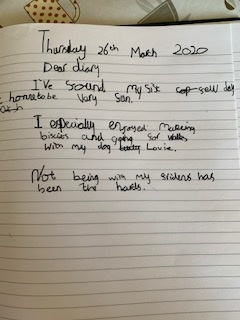 Thursday 26th March 2020
Dear diary
I've sound my six day
home to be Vary Sun.
I especially enjoyed making
biscits and going for walks
with my dog Louie.
Not being with my sriders has
been the hards.